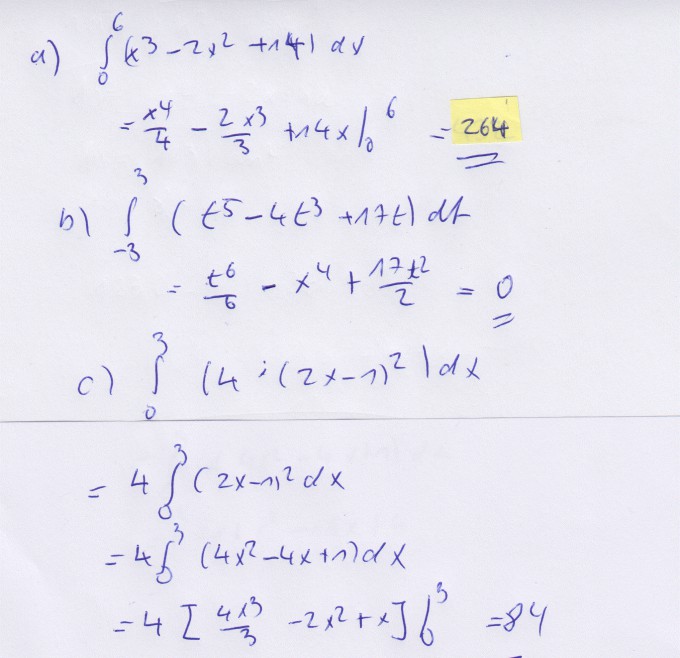 a) ∫₀⁶ (x³ - 2x² + 14) dx
= x⁴/4 - 2x³/3 + 14x |₀⁶ = 264
b) ∫₋₃³ (t⁵ - 4t³ + 17t) dt
= t⁶/6 - x⁴ + 17t²/2 = 0
c) ∫₀³ (4 · (2x-1)²) dx
= 4 ∫₀³ (2x-1)² dx
= 4 ∫₀³ (4x² - 4x + 1) dx
= 4 [4x³/3 - 2x² + x] |₀³ = 84